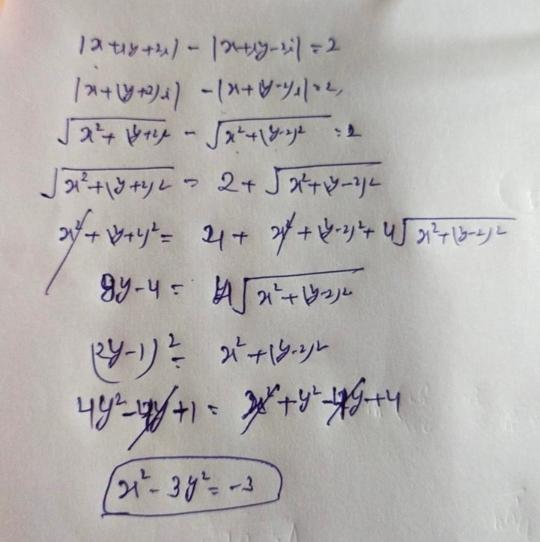 |x+iy+2i| - |x+iy-2i| = 2
|x+(y+2)i| - |x+(y-2)i| = 2,
√x²+(y+2)² - √x²+(y-2)² = 2
√x²+(y+2)² = 2 + √x²+(y-2)²
x²+(y+2)² = 4 + x²+(y-2)²+4√x²+(y-2)²
8y-4 = 4√x²+(y-2)²
(2y-1)² = x²+(y-2)²
4y²-4y+1 = x²+y²-4y+4
x²-3y²=-3